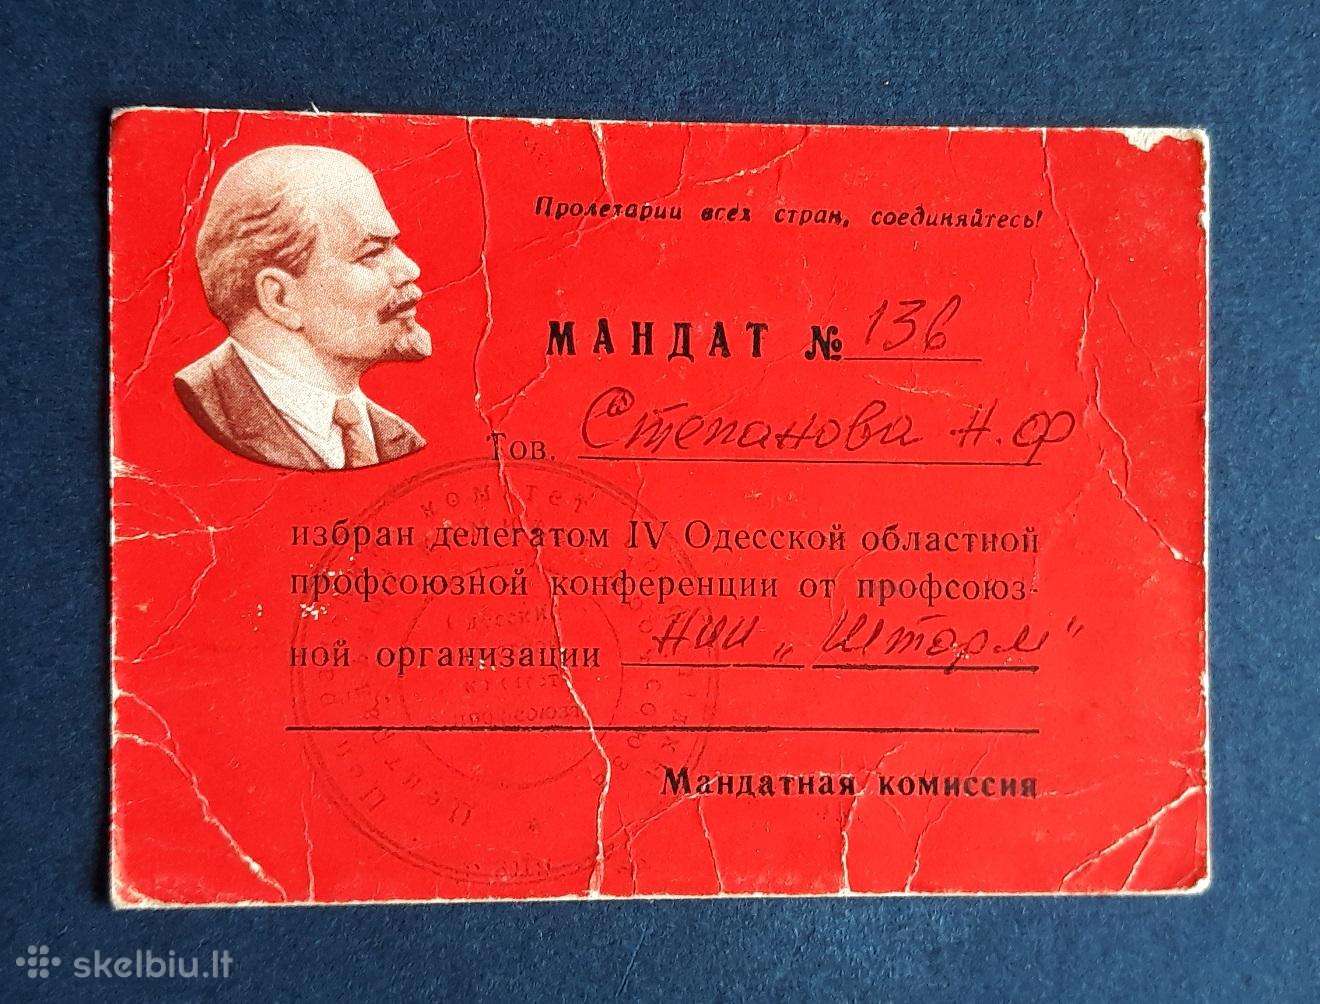 Пролетарии всех стран, соединяйтесь!
МАНДАТ № 136
Тов. Степанова Н. Ф
избран делегатом IV Одесской областной
профсоюзной конференции от профсоюз-
ной организации НИИ „Шторм"
Мандатная комиссия
комитет
skelbiu.lt